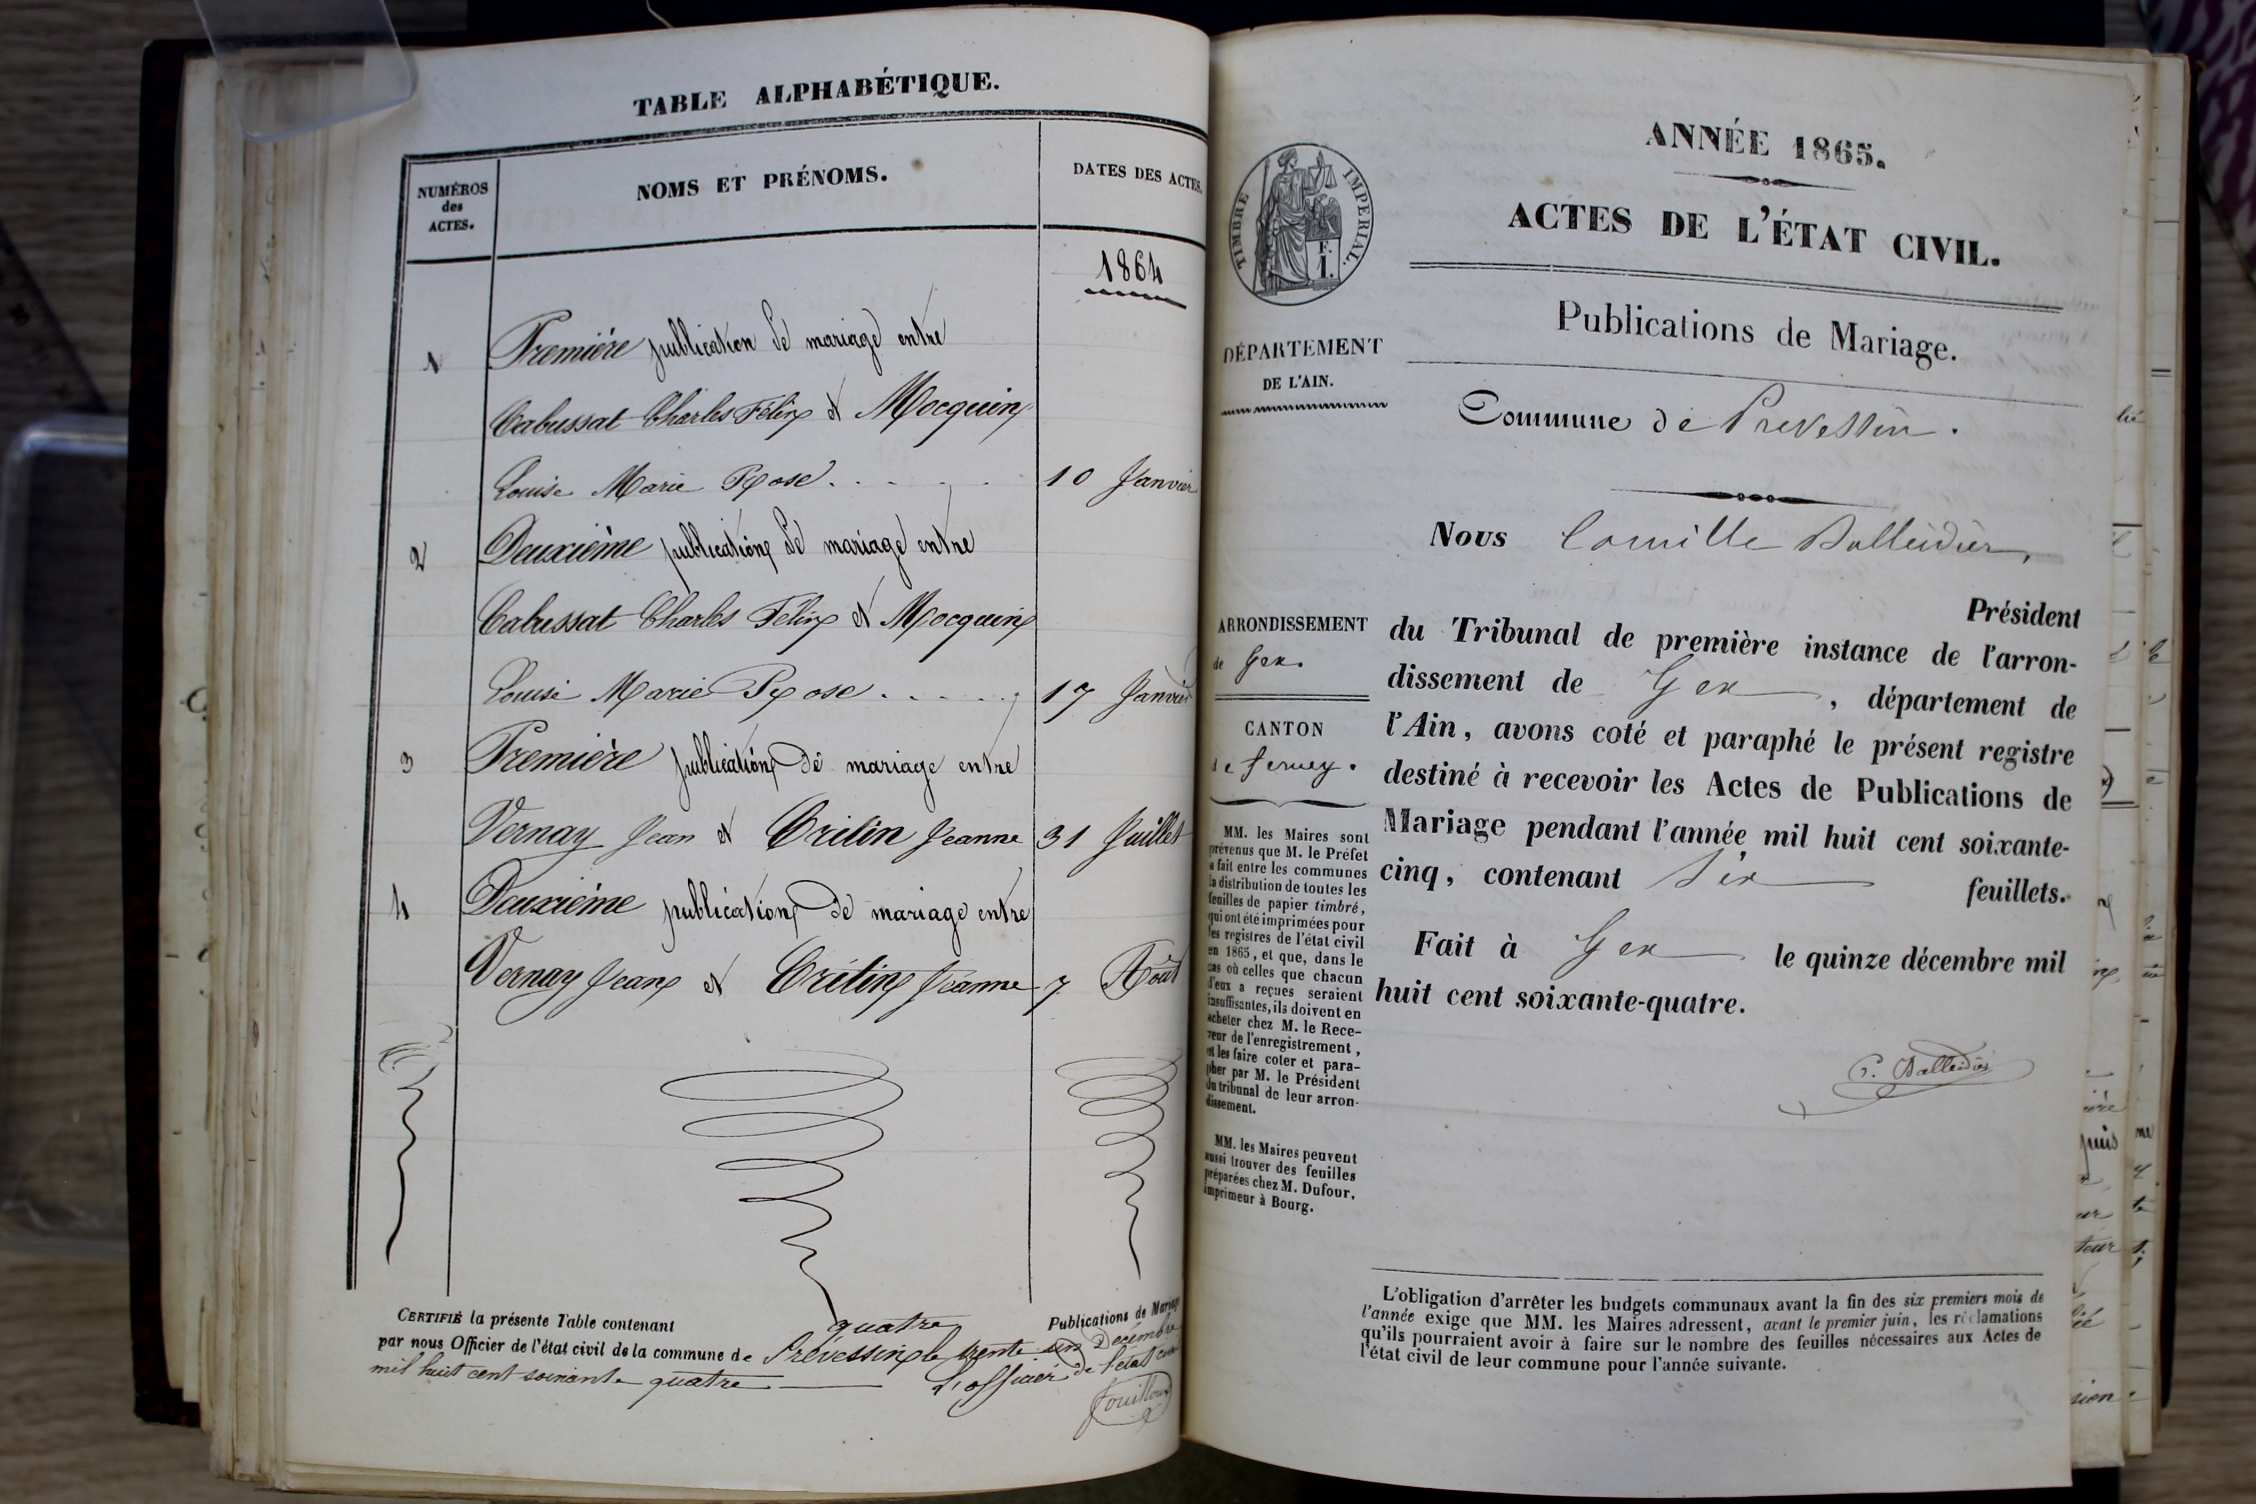 TABLE ALPHABÉTIQUE.
NUMÉROS
des
ACTES.
NOMS ET PRÉNOMS.
DATES DES ACTES.
1864
1 Première publication de mariage entre
Cabussat Charles Félix et Mocquin
Louise Marie Rose . . . . . 10 Janvier
2 Deuxième publication de mariage entre
Cabussat Charles Félix et Mocquin
Louise Marie Rose . . . . . 17 Janvier
3 Première publication de mariage entre
Vernay Jean et Crétin Jeanne 31 Juillet
4 Deuxième publication de mariage entre
Vernay Jean et Crétin Jeanne 7 Août
CERTIFIÉ la présente Table contenant quatre Publications de Mariage
par nous Officier de l'état civil de la commune de Prévessin le trente un Décembre
mil huit cent soixante quatre L'officier de l'état civil
Fouilloux
ANNÉE 1865.
ACTES DE L'ÉTAT CIVIL.
TIMBRE IMPERIAL.
F.
1.
Publications de Mariage.
DÉPARTEMENT
DE L'AIN.
Commune de Prevessin.
Nous Camille Balleidier,
Président
ARRONDISSEMENT
de Gex.
CANTON
de Ferney.
du Tribunal de première instance de l'arron-
dissement de Gex, département de
l'Ain, avons coté et paraphé le présent registre
destiné à recevoir les Actes de Publications de
Mariage pendant l'année mil huit cent soixante-
cinq, contenant Six feuillets.
Fait à Gex le quinze décembre mil
huit cent soixante-quatre.
C. Balleidier
MM. les Maires sont
prévenus que M. le Préfet
a fait entre les communes
la distribution de toutes les
feuilles de papier timbré,
qui ont été imprimées pour
les registres de l'état civil
en 1865, et que, dans le
cas où celles que chacun
d'eux a reçues seraient
insuffisantes, ils doivent en
acheter chez M. le Rece-
veur de l'enregistrement,
et les faire coter et para-
pher par M. le Président
du tribunal de leur arron-
dissement.
MM. les Maires peuvent
aussi trouver des feuilles
préparées chez M. Dufour,
imprimeur à Bourg.
L'obligation d'arrêter les budgets communaux avant la fin des six premiers mois de
l'année exige que MM. les Maires adressent, avant le premier juin, les réclamations
qu'ils pourraient avoir à faire sur le nombre des feuilles nécessaires aux Actes de
l'état civil de leur commune pour l'année suivante.